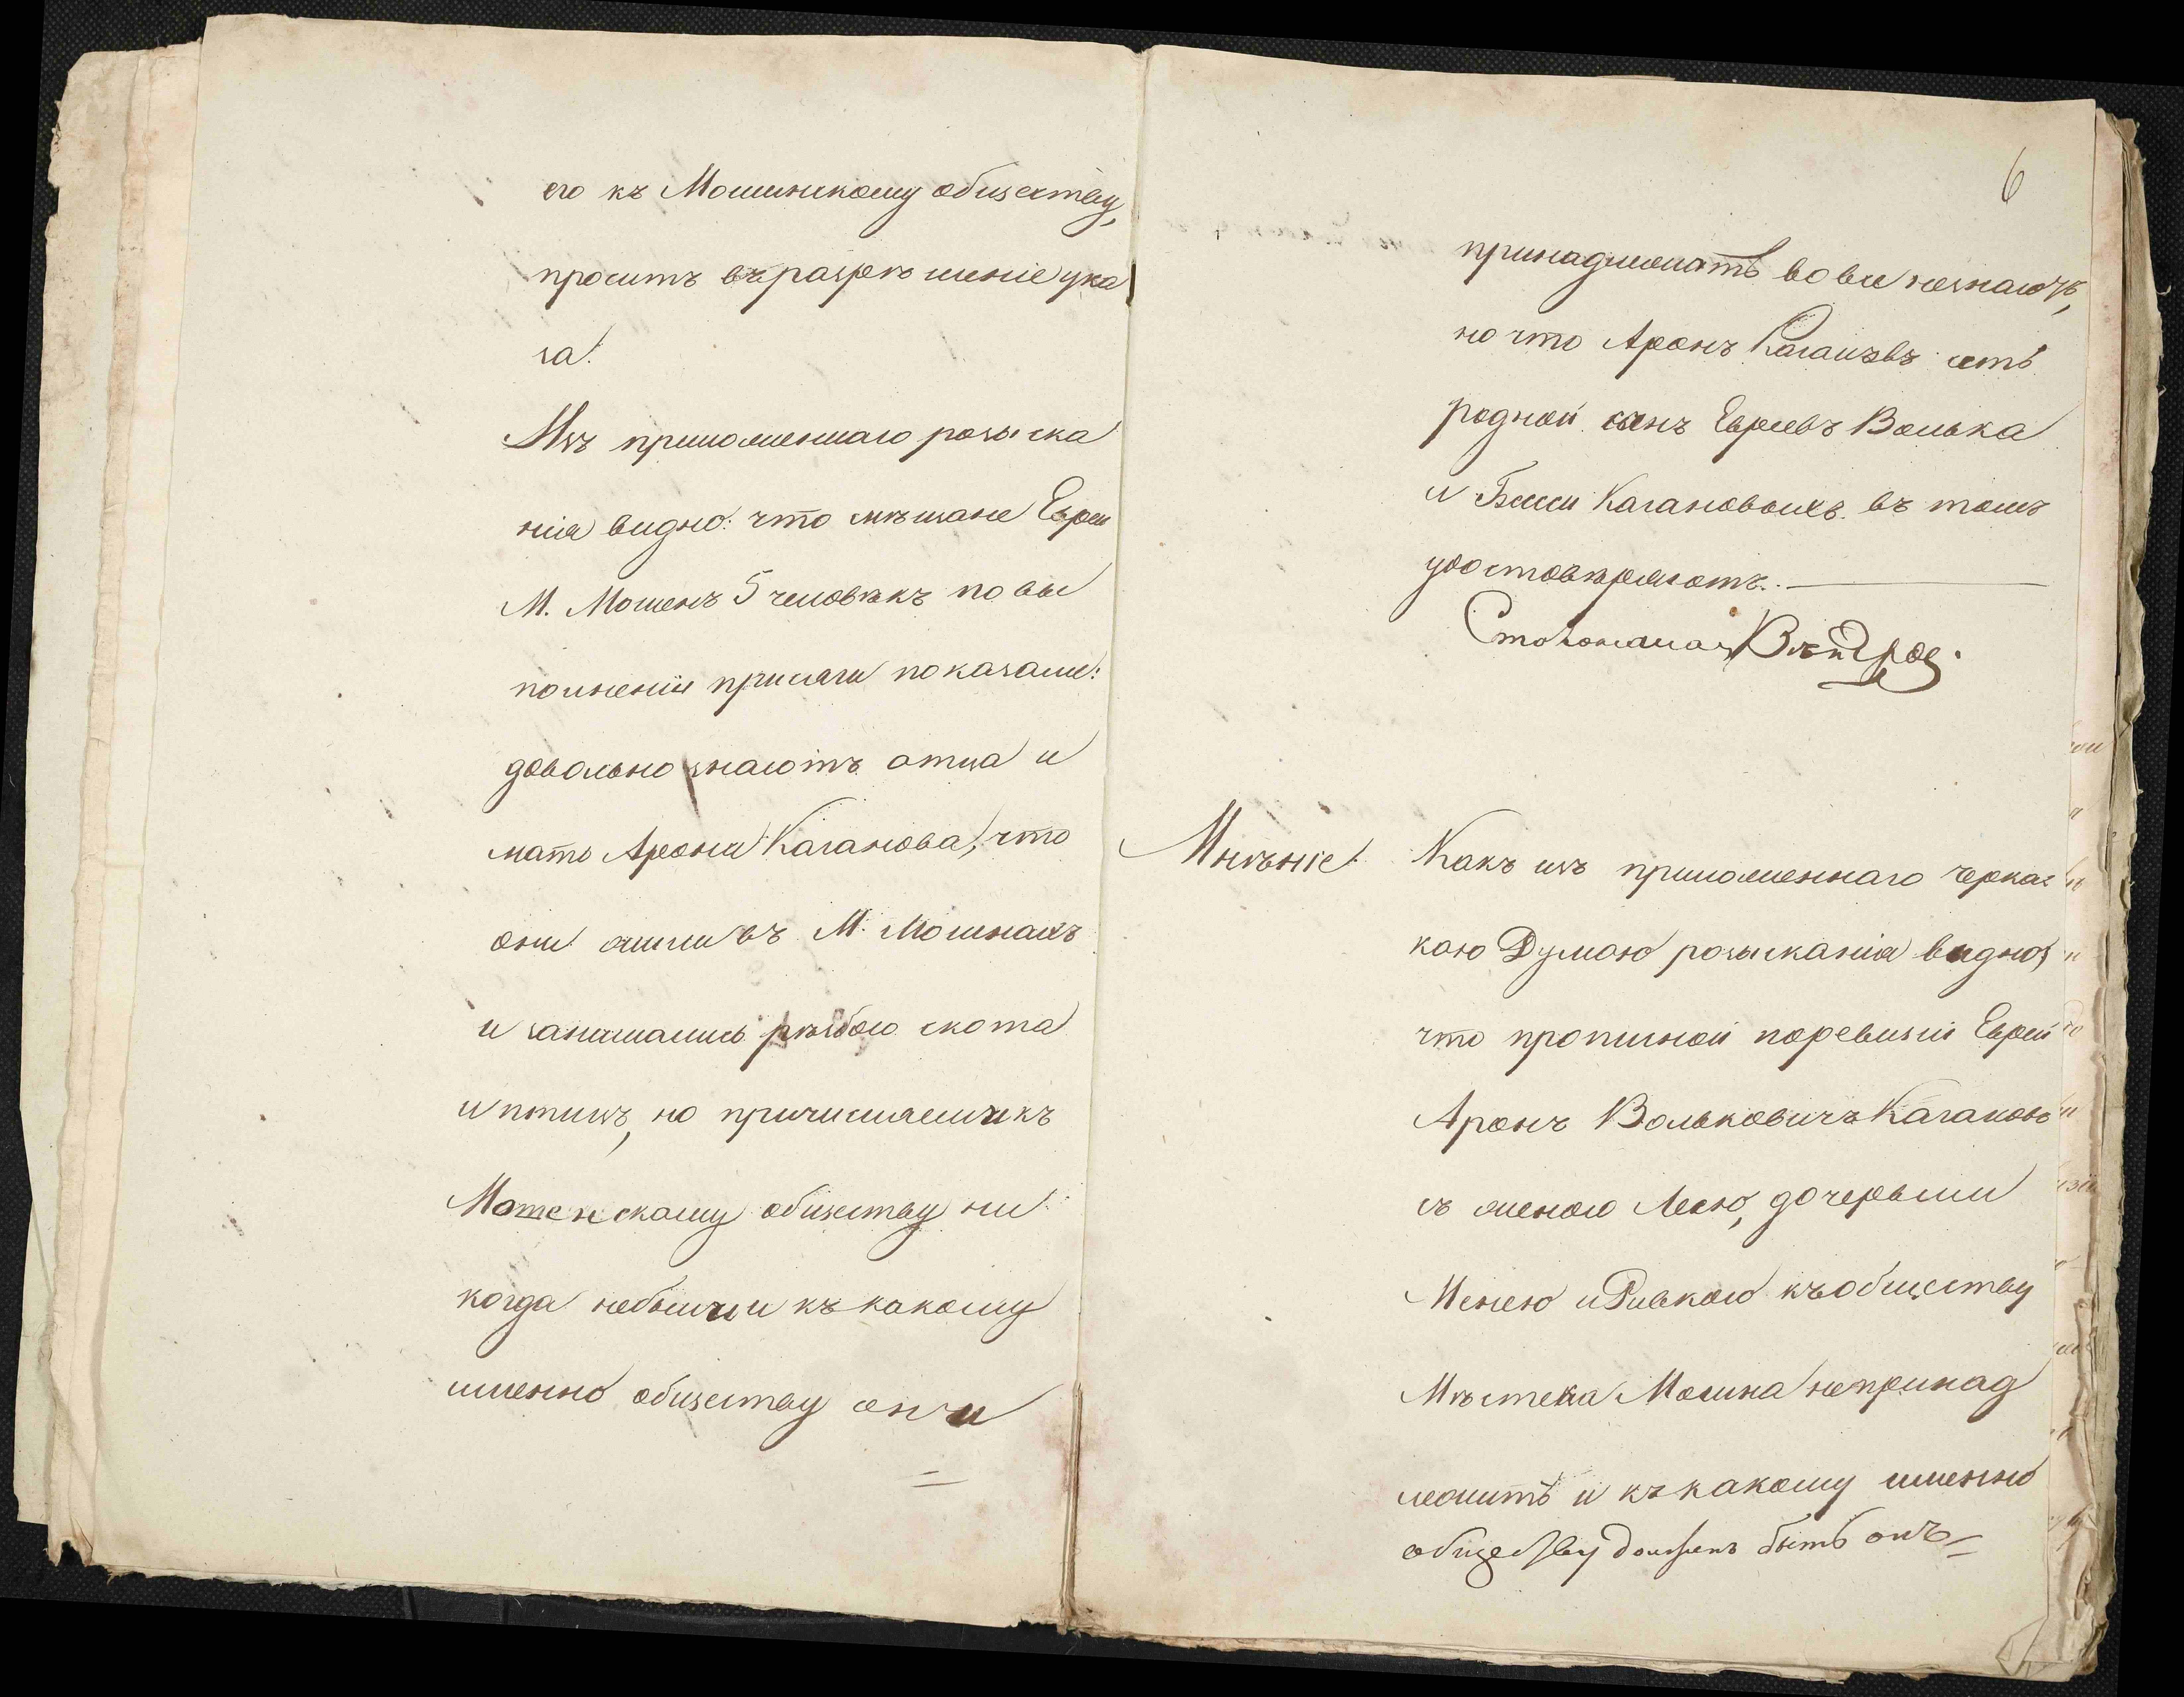 его къ Мошинскому обществу,
проситъ въ разрѣшеніе ука
за.
Изъ приложеннаго розыска
нія видно: что мѣщане Евреи
М. Мошенъ 5 человѣкъ по вы
полненіи присяги показали:
довольно знаютъ отца и
мать Арона Каганова, что
они жили въ М. Мошнахъ
и занимались рѣзбою скота
и птицъ, но причислеными къ
Мошенскому обществу ни
когда небыли и къ какому
именно обществу они
6
принадлежатъ вовсе незнаютъ,
но что Аронъ Кагановъ есть
родной сынъ Евреевъ Волька
и Баси Кагановыхъ въ томъ
удостовѣряютъ.
Столоначал
Мнѣніе. Какъ изъ приложеннаго Черкас
кою Думою розысканія видно,
что прописной поревизіи Еврей
Аронъ Вольковичъ Кагановъ
съ женою Леею, дочерьми
Менею и Ривкою къ обществу
Мѣстечка Мошна непринад
лежитъ и къ какому именно
обществу долженъ быть онъ